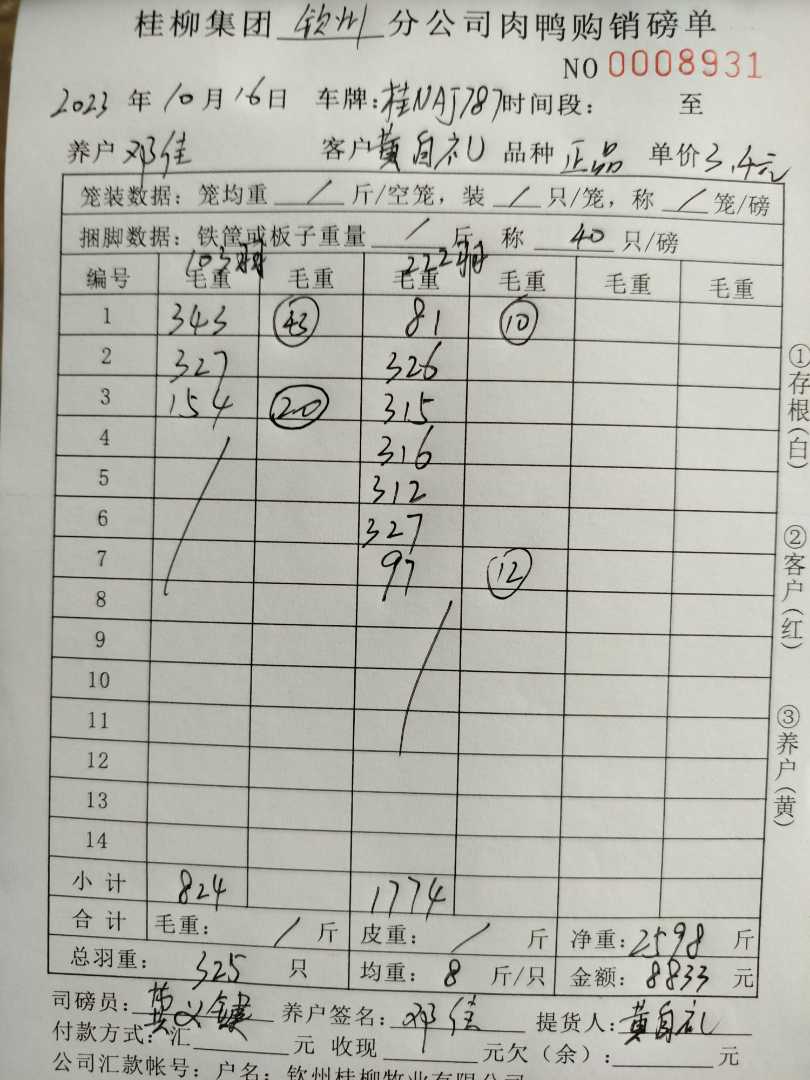 桂柳集团 钦州 分公司肉鸭购销磅单
NO 0008931
2023 年 10 月 16 日 车牌:桂NAJ787 时间段: 至
养户 邓佳 客户 黄自礼 品种 正品 单价 3.4元
笼装数据: 笼均重 / 斤/空笼, 装 / 只/笼, 称 / 笼/磅
捆脚数据: 铁筐或板子重量 / 斤 称 40 只/磅
103羽 222羽
编号 毛重 毛重 毛重 毛重 毛重 毛重
1 343 43 81 10
2 327 326
3 154 20 315
4 316
5 312
6 327
7 97 12
8
9
10
11
12
13
14
小计 824 1774
合计 毛重: / 斤 皮重: / 斤 净重: 2598 斤
总羽重: 325 只 均重: 8 斤/只 金额: 8833 元
①存根(白)
②客户(红)
③养户(黄)
司磅员: 黄义 养户签名: 邓佳 提货人: 黄自礼
付款方式: 汇 元 收现 元欠(余): 元
公司汇款帐号: 户名: 钦州桂柳牧业有限公司